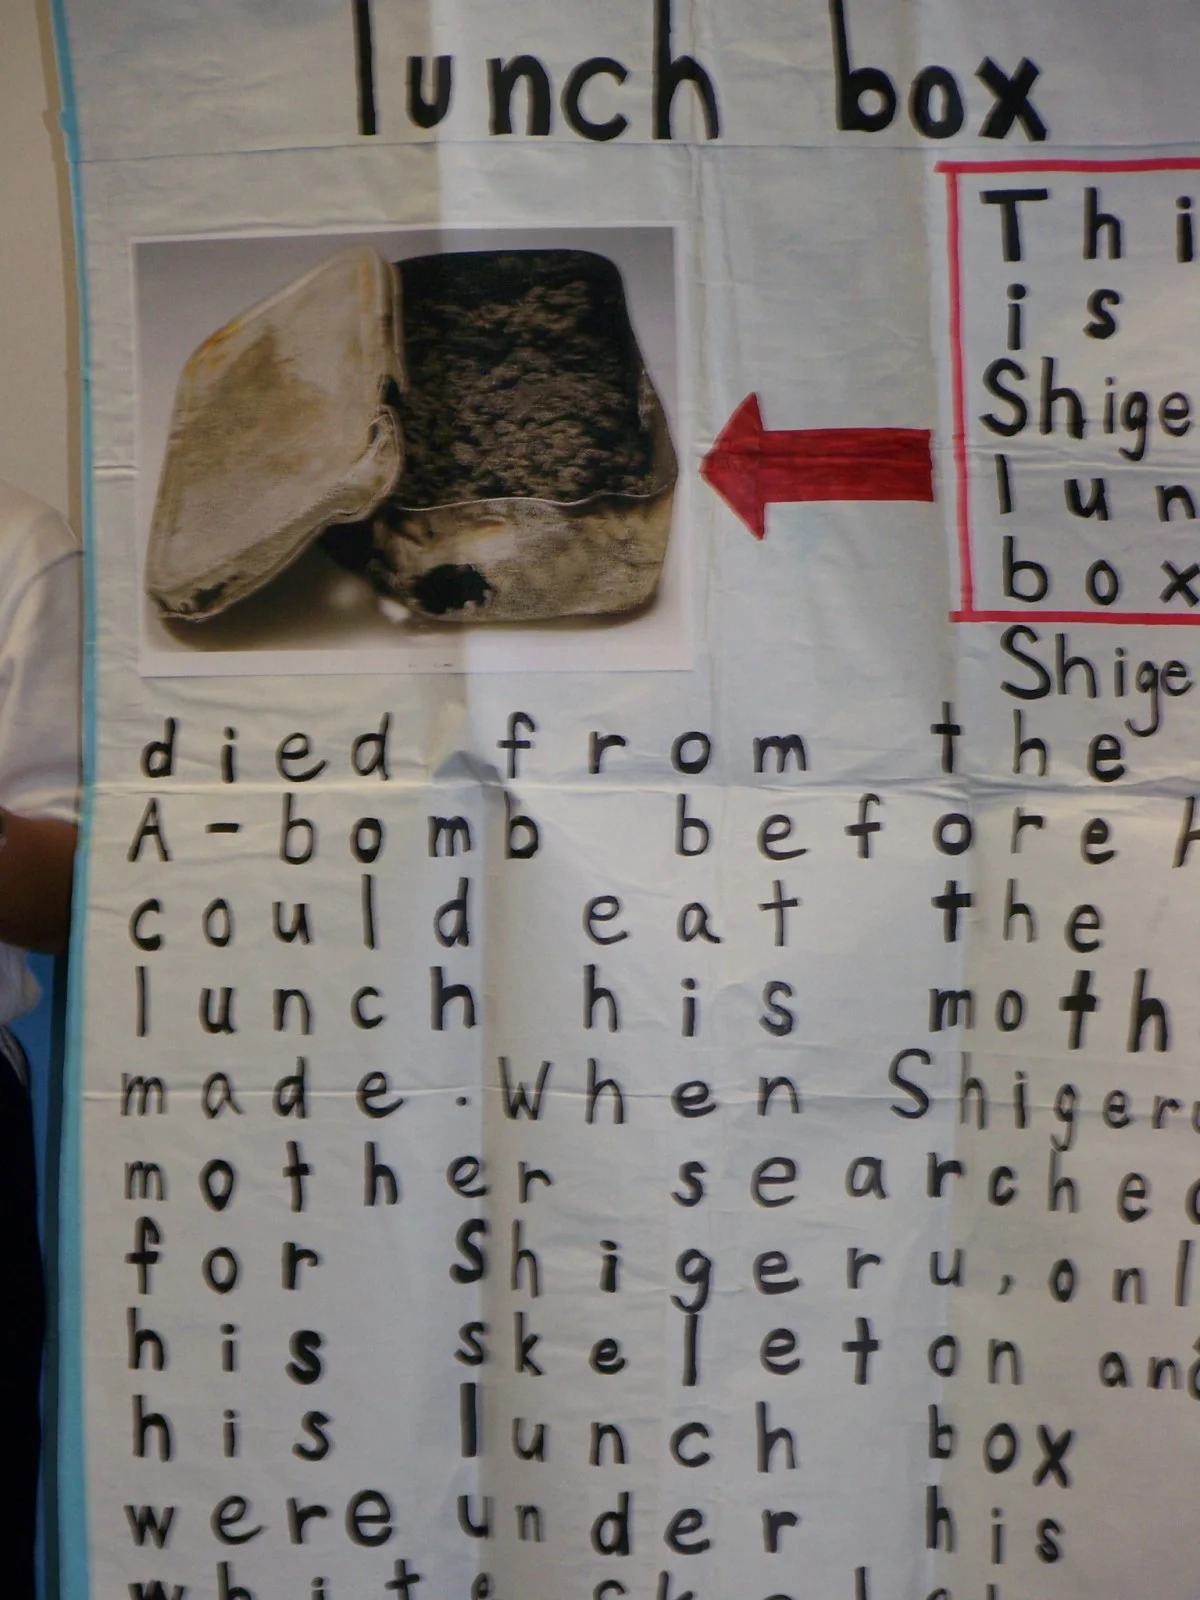 lunch box
Thi
is
Shige
lun
box
Shige
died from the
A-bomb before h
could eat the
lunch his moth
made. When Shigeru
mother searched
for Shigeru, onl
his skeleton and
his lunch box
were under his
white skelet